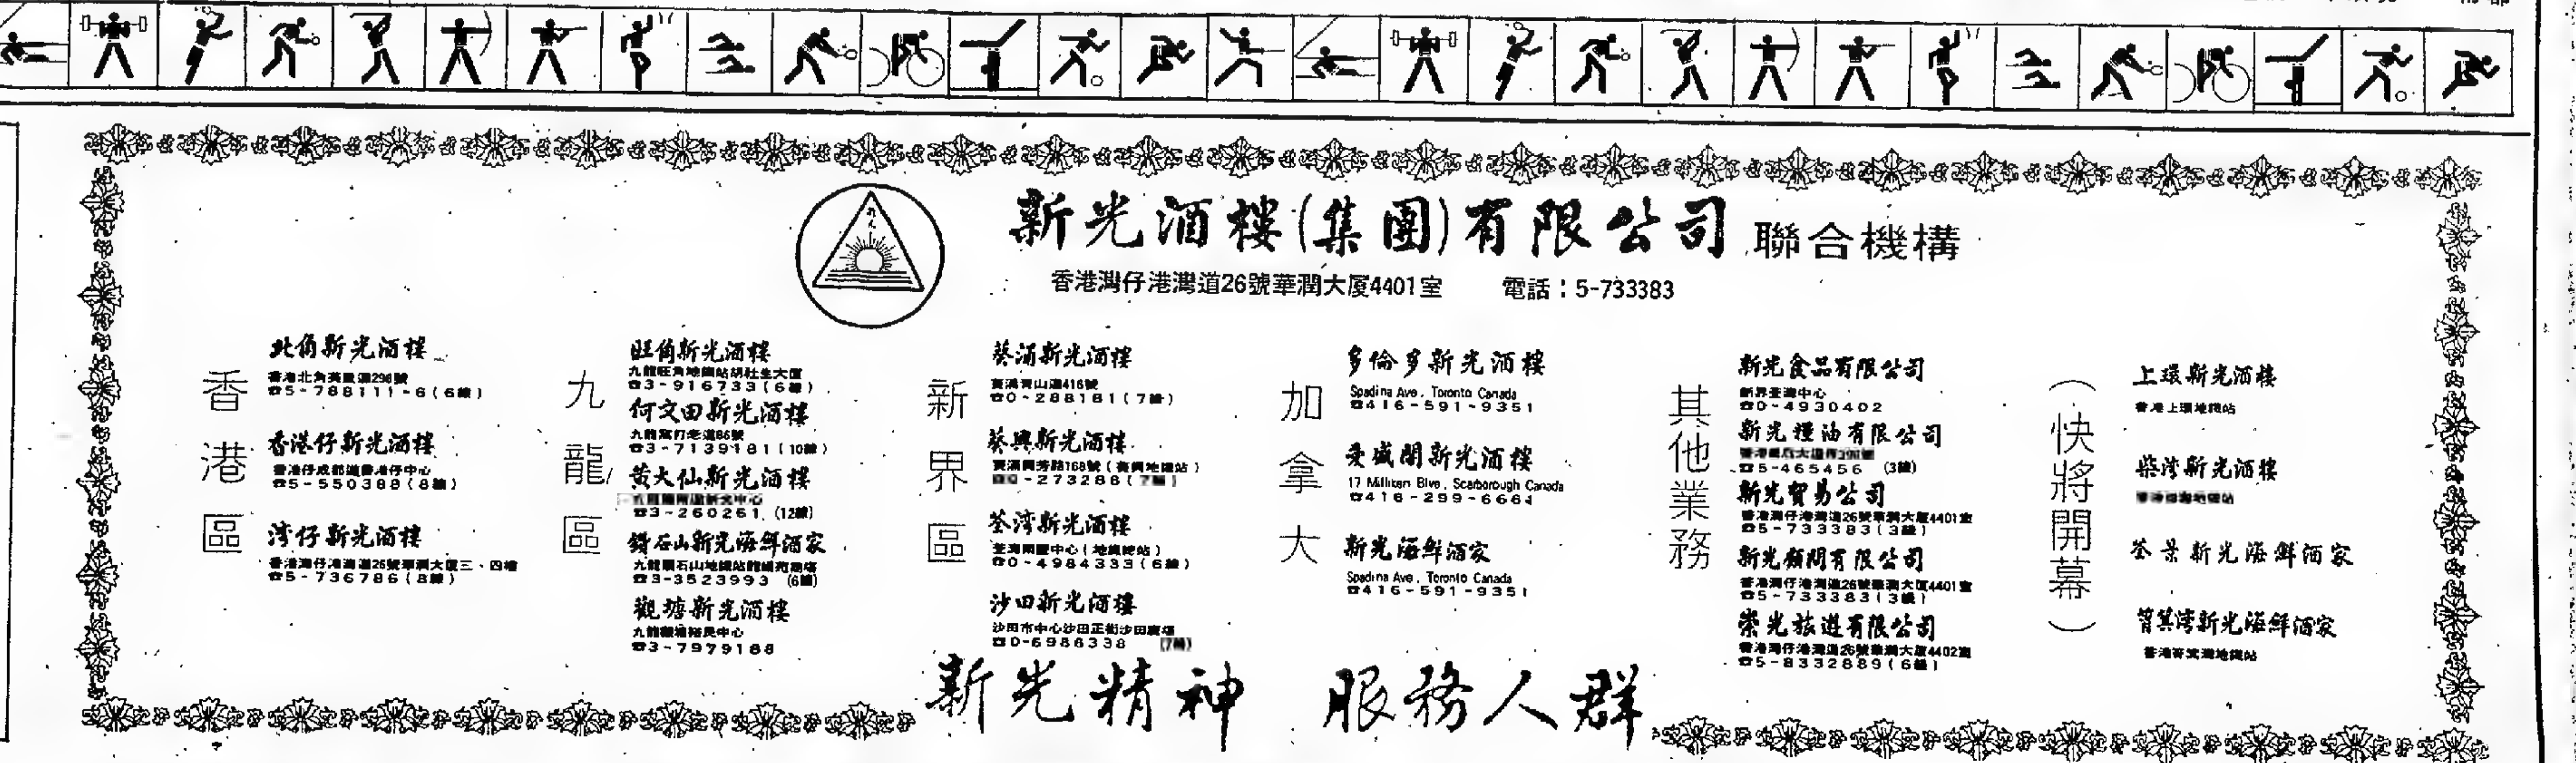 新光酒樓(集團)有限公司 聯合機構
香港灣仔港灣道26號華潤大厦4401室 電話：5-733383
香港區
北角新光酒樓
香港北角英皇道298號
☎5-788111-6(6線)
香港仔新光酒樓
香港仔成都道香港仔中心
☎5-550388(8線)
湾仔新光酒樓
香港灣仔港灣道26號華潤大厦三、四樓
☎5-736786(8線)
九龍區
旺角新光酒樓
九龍旺角地鐵站胡社生大厦
☎3-916733(6線)
何文田新光酒樓
九龍窩打老道86號
☎3-7139181(10線)
黃大仙新光酒樓
☎3-260261 (12線)
鑽石山新光海鮮酒家
九龍鑽石山地鐵站龍蟠苑商場
☎3-3523993 (6線)
觀塘新光酒樓
九龍觀塘裕民中心
☎3-7979188
新界區
葵涌新光酒樓
葵涌青山道416號
☎0-288181(7線)
葵興新光酒樓
葵涌興芳路168號(葵興地鐵站)
-273288
荃湾新光酒樓
荃灣南豐中心(地鐵總站)
☎0-4984333(6線)
沙田新光酒樓
沙田市中心沙田正街沙田廣場
☎0-6986338 (7線)
加拿大
多倫多新光酒樓
Spadina Ave, Toronto Canada
☎416-591-9351
愛盛閣新光酒樓
17 Milliken Blve, Scarborough Canada
☎416-299-6661
新光海鮮酒家
Spadina Ave, Toronto Canada
☎416-591-9351
其他業務
新光食品有限公司
新界荃灣中心
☎0-4930402
新光糧油有限公司
☎5-465456 (3線)
新光貿易公司
香港灣仔港灣道26號華潤大厦4401室
☎5-733383(3線)
新光顧問有限公司
香港灣仔港灣道26號華潤大厦4401室
☎5-733383(3線)
崇光旅遊有限公司
香港灣仔港灣道26號華潤大厦4402室
☎5-8332889(6線)
(快將開幕)
上環新光酒樓
香港上環地鐵站
柴湾新光酒樓
荃景新光海鮮酒家
筲箕湾新光海鮮酒家
香港筲箕灣地鐵站
新光精神 服務人群